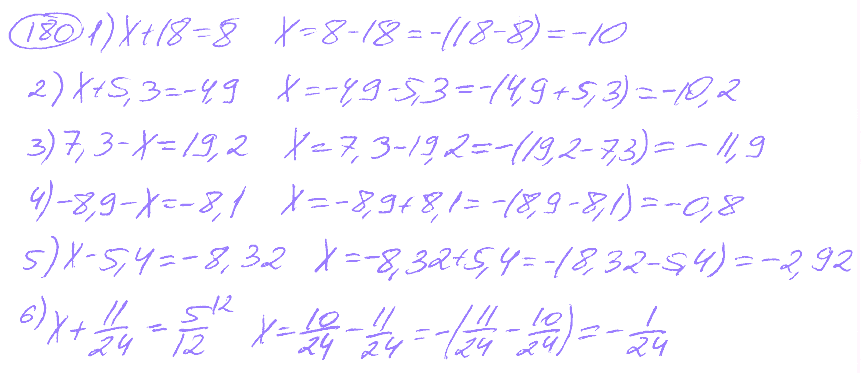 180 1) x+18=8 x=8-18=-(18-8)=-10
2) x+5,3=-4,9 x=-4,9-5,3=-(4,9+5,3)=-10,2
3) 7,3-x=19,2 x=7,3-19,2=-(19,2-7,3)=-11,9
4) -8,9-x=-8,1 x=-8,9+8,1=-(8,9-8,1)=-0,8
5) x-5,4=-8,32 x=-8,32+5,4=-(8,32-5,4)=-2,92
6) x+11/24=5/12 12 x=10/24-11/24=-(11/24-10/24)=-1/24